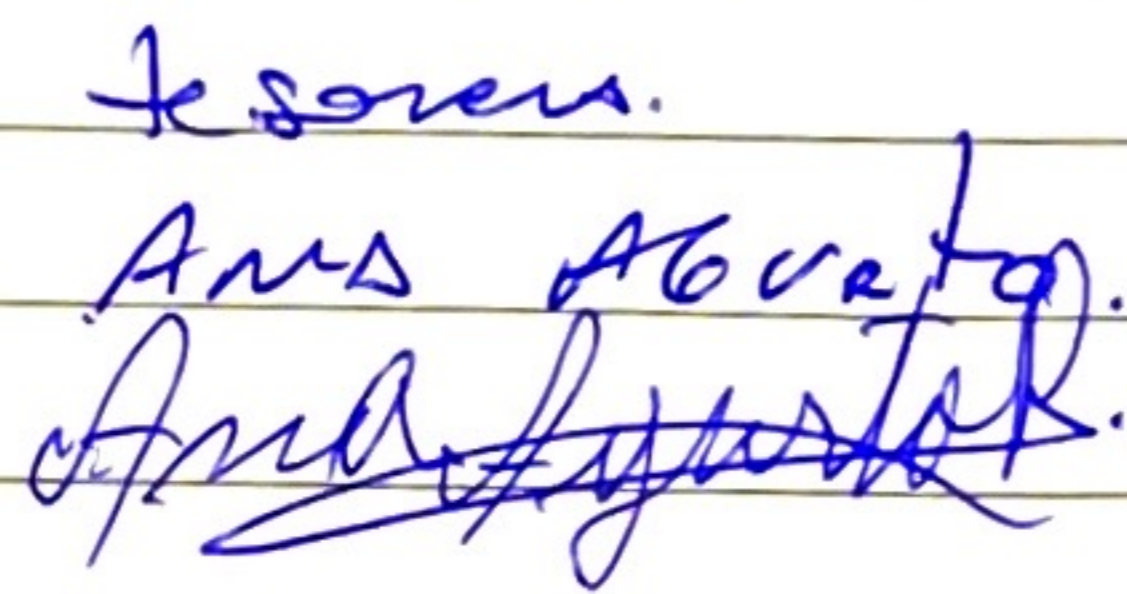 tesorera.
Ana Agurto.
Ana Agurto.